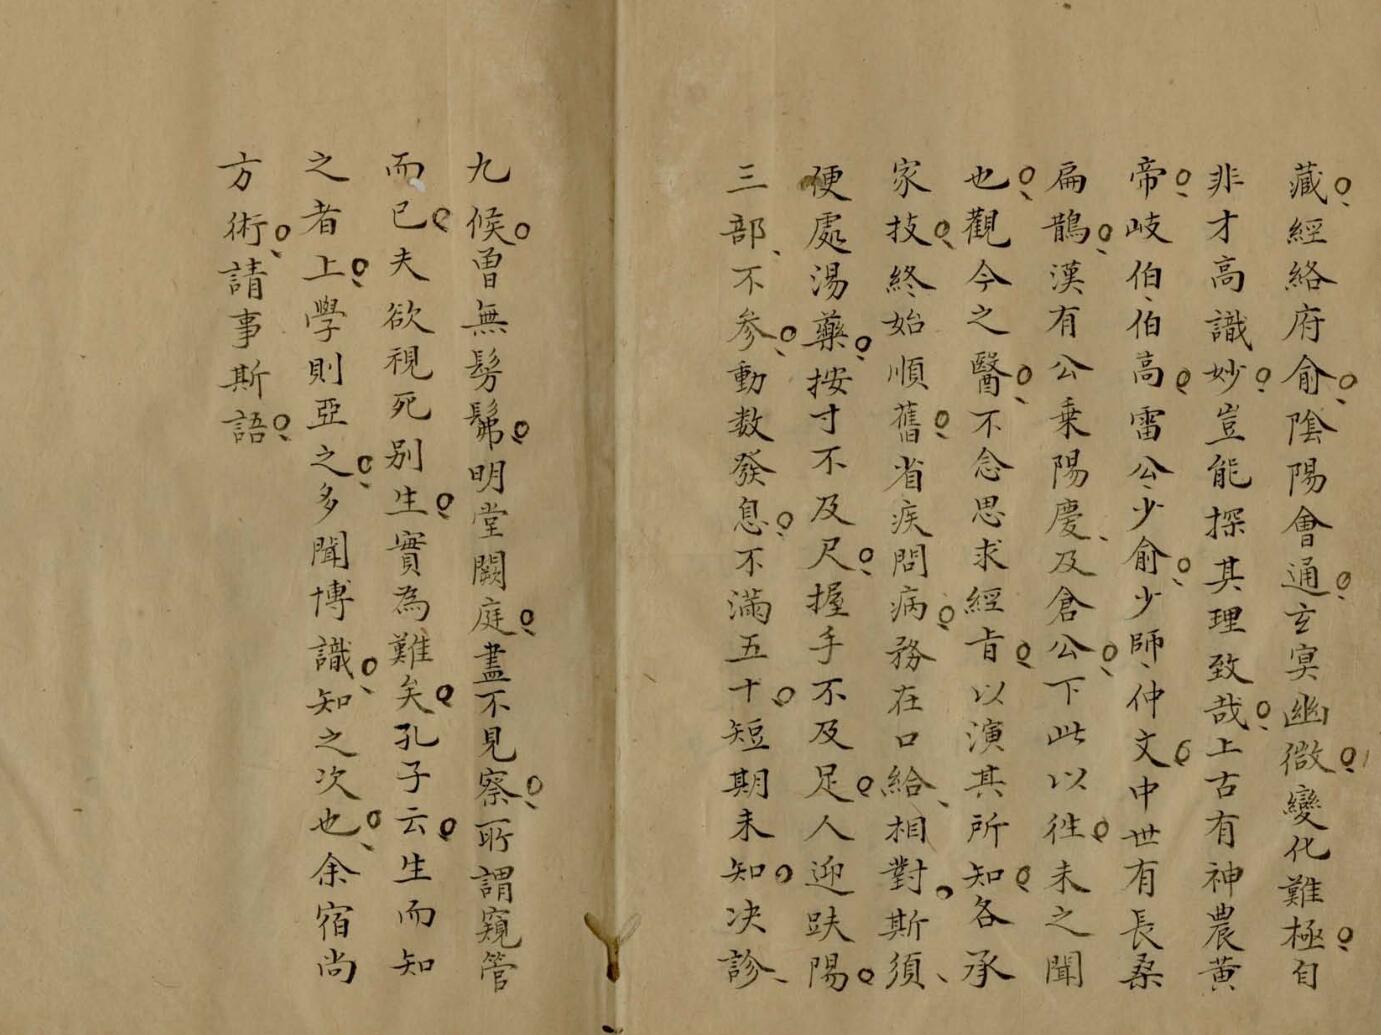 藏經絡府俞陰陽會通玄冥幽微變化難極自
非才高識妙豈能探其理致哉上古有神農黄
帝岐伯伯高雷公少俞少師仲文中世有長桑
扁鵲漢有公乗陽慶及倉公下此以徃未之聞
也觀今之醫不念思求經旨以演其所知各承
家技終始順舊省疾問病務在口給相對斯須
便處湯藥按寸不及尺握手不及足人迎趺陽
三部不参動数發息不滿五十短期未知决診
九候曽無髣髴明堂闕庭盡不見察所謂窺管
而已夫欲視死别生實為難矣孔子云生而知
之者上學則亞之多聞博識知之次也余宿尚
方術請事斯語